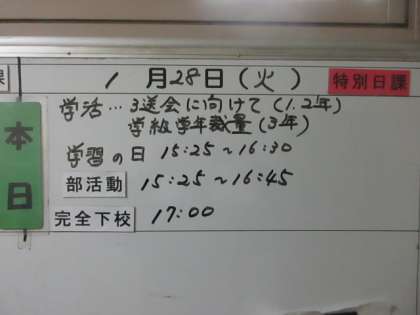 課 1月28日(火) 特別日課
本日
学活…3送会に向けて(1.2年)
学級学年裁量(3年)
学習の日 15:25~16:30
部活動 15:25~16:45
完全下校 17:00